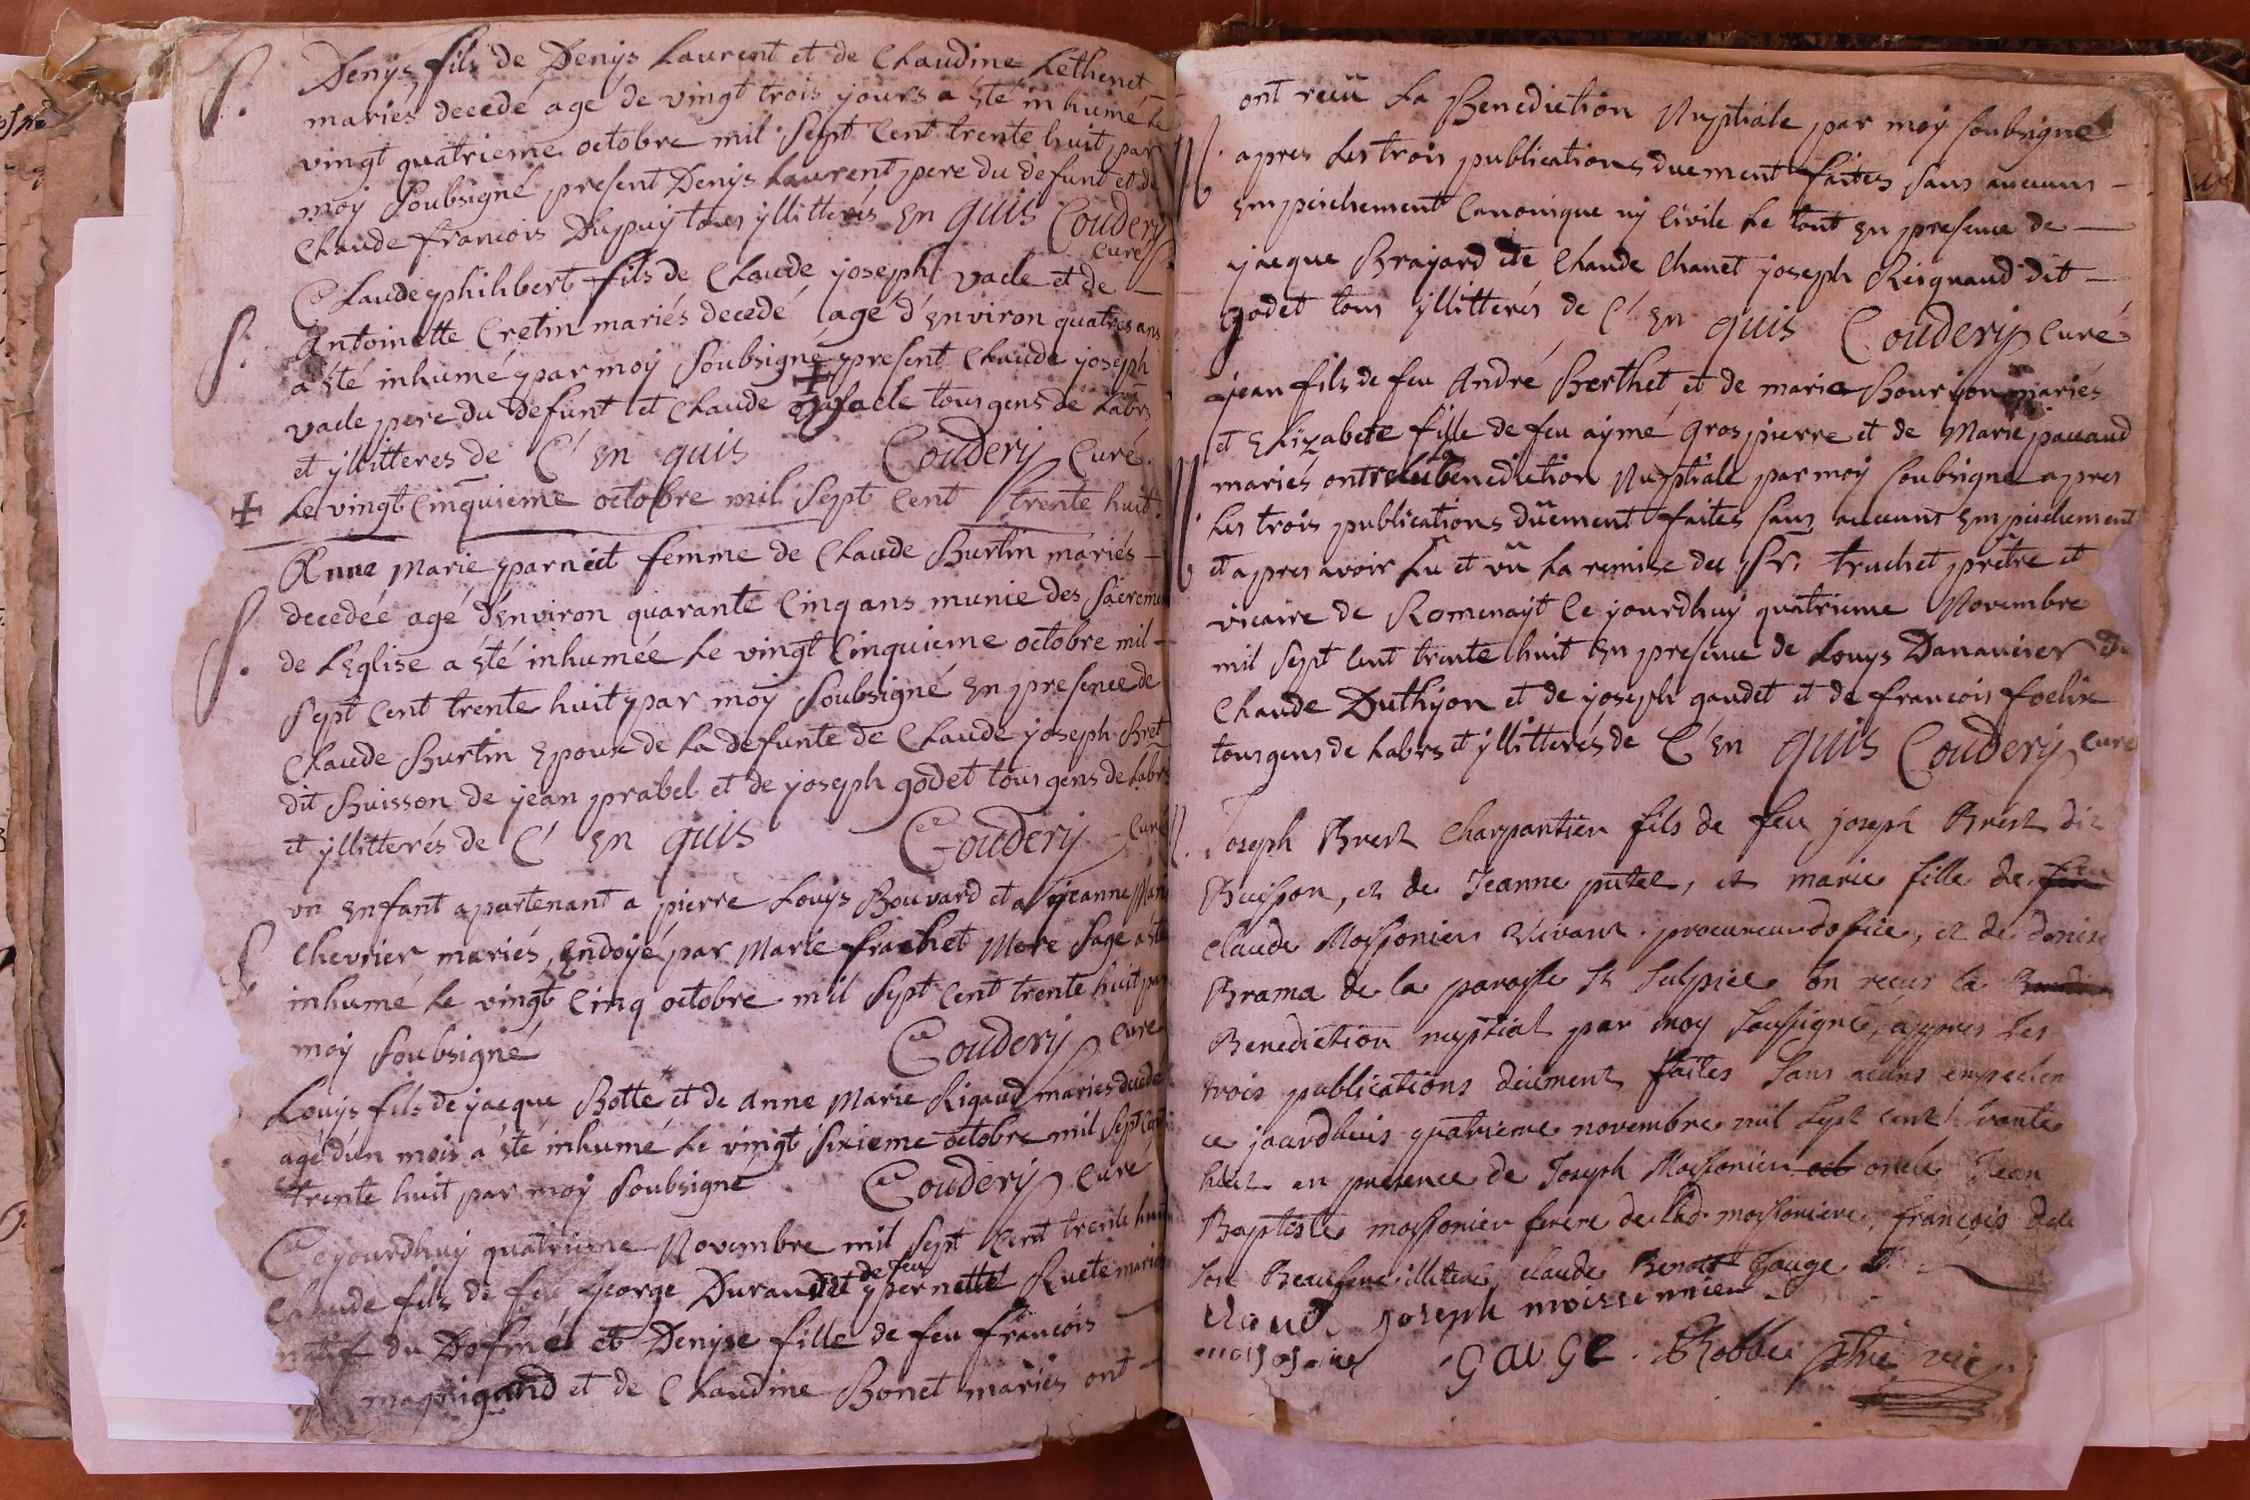 S. Denys fils de Denys Laurent et de Claudine Lethenet
mariés decedé agé de vingt trois jours a été inhumé le
vingt quatrieme octobre mil sept cent trente huit par
moy soubsigné present Denys Laurent pere du defunt et de
Claude francois Dupuy tous yllitterés En quis Coudery
curé
Claude philibert fils de Claude joseph vacle et de
S. Antoinette Cretin mariés decedé agé d'Environ quatres ans
a été inhumé par moy Soubsigné ✝ present Claude joseph
vacle pere du defunt et Claude vacle tous gens de Labrs
et yllitteres de C' En quis Coudery Curé.
✝ Le vingt Cinquieme octobre mil Sept Cent trente huit.
Anne Marie parnet femme de Claude Burtin mariés
S. decedeé agé d'Environ quarante Cinq ans munie des Sacremen
de L'Eglise a été inhumée Le vingt Cinquieme octobre mil
Sept Cent trente huit par moy Soubsigné En presence de
Claude Burtin Epoux de La defunte de Claude joseph Bret
dit Buisson de jean prabel et de joseph godet tous gens de Labrs
et yllitterés de C' En quis Coudery Curé
un Enfant apartenant a pierre Louys Bouvard et a jeanne Marie
S. Chevrier mariés, Endoyé par Marie frachet Mere Sage a été
inhumé Le vingt Cinq octobre mil Sept Cent trente huit par
moy Soubsigné Coudery Curé
Louys fils de jacque Botte et de Anne Marie Rigaud mariés decedé
agé d'un mois a été inhumé Le vingt Sixieme octobre mil Sept Cent
trente huit par moy Soubsigné Coudery Curé
Ce jourdhuy quatrieme Novembre mil Sept Cent trente huit
Claude fils de feu George Durand et de feu pernette Ruete mariés
natif du et Denyse fille de feu francois
et de Claudine Bonet mariés ont
ont reçu La Benediction Nuptiale par moy soubsigné
N. apres Les trois publications duement faites sans aucuns
Empeichement Canonique ny Civile Le tout En presence de
jacque Brayard de Claude Chanet joseph Reignaud dit
godet tous yllitterés de C' En quis Coudery Curé
jean fils de feu André Berthet et de marie Bourjon mariés
et Elizabete fille de feu aymé Gros pierre et de Marie pauaud
N. mariés ont reçu la benediction Nuptiale par moy soubsigné apres
Les trois publications dûement faites sans aucuns Empeichement
et apres avoir Lû et vû La remise du Sr. truchet prêtre et
vicaire de Romenayt Ce jourdhuy quatrieme Novembre
mil Sept Cent trente huit En presence de Louys Danancier de
Claude Duthyon et de joseph gaudet et de francois foelix
tous gens de Labrs et yllitterés de C' En quis Coudery Curé
N. Joseph Brest Charpantier fils de feu joseph Brest dit
Buisson, et de Jeanne putet, et marie fille de feu
Claude Mossonier vivant procureur dofice, et de denise
Brama de la paroisse St Sulpice on reçus la
Benediction nuptial par moy soussigné, appres les
trois publications deüment faites sans aucuns empechem
ce jourdhuis quatrieme novembre mil sept cent trante
huit en presence de Joseph Mossonier oncle Jean
Baptiste mossonier frere de lad. mossoniere, françois
Beaufeur illiteré, claude Benoist Gauge
claude joseph moissonnier
gauge. Robbe